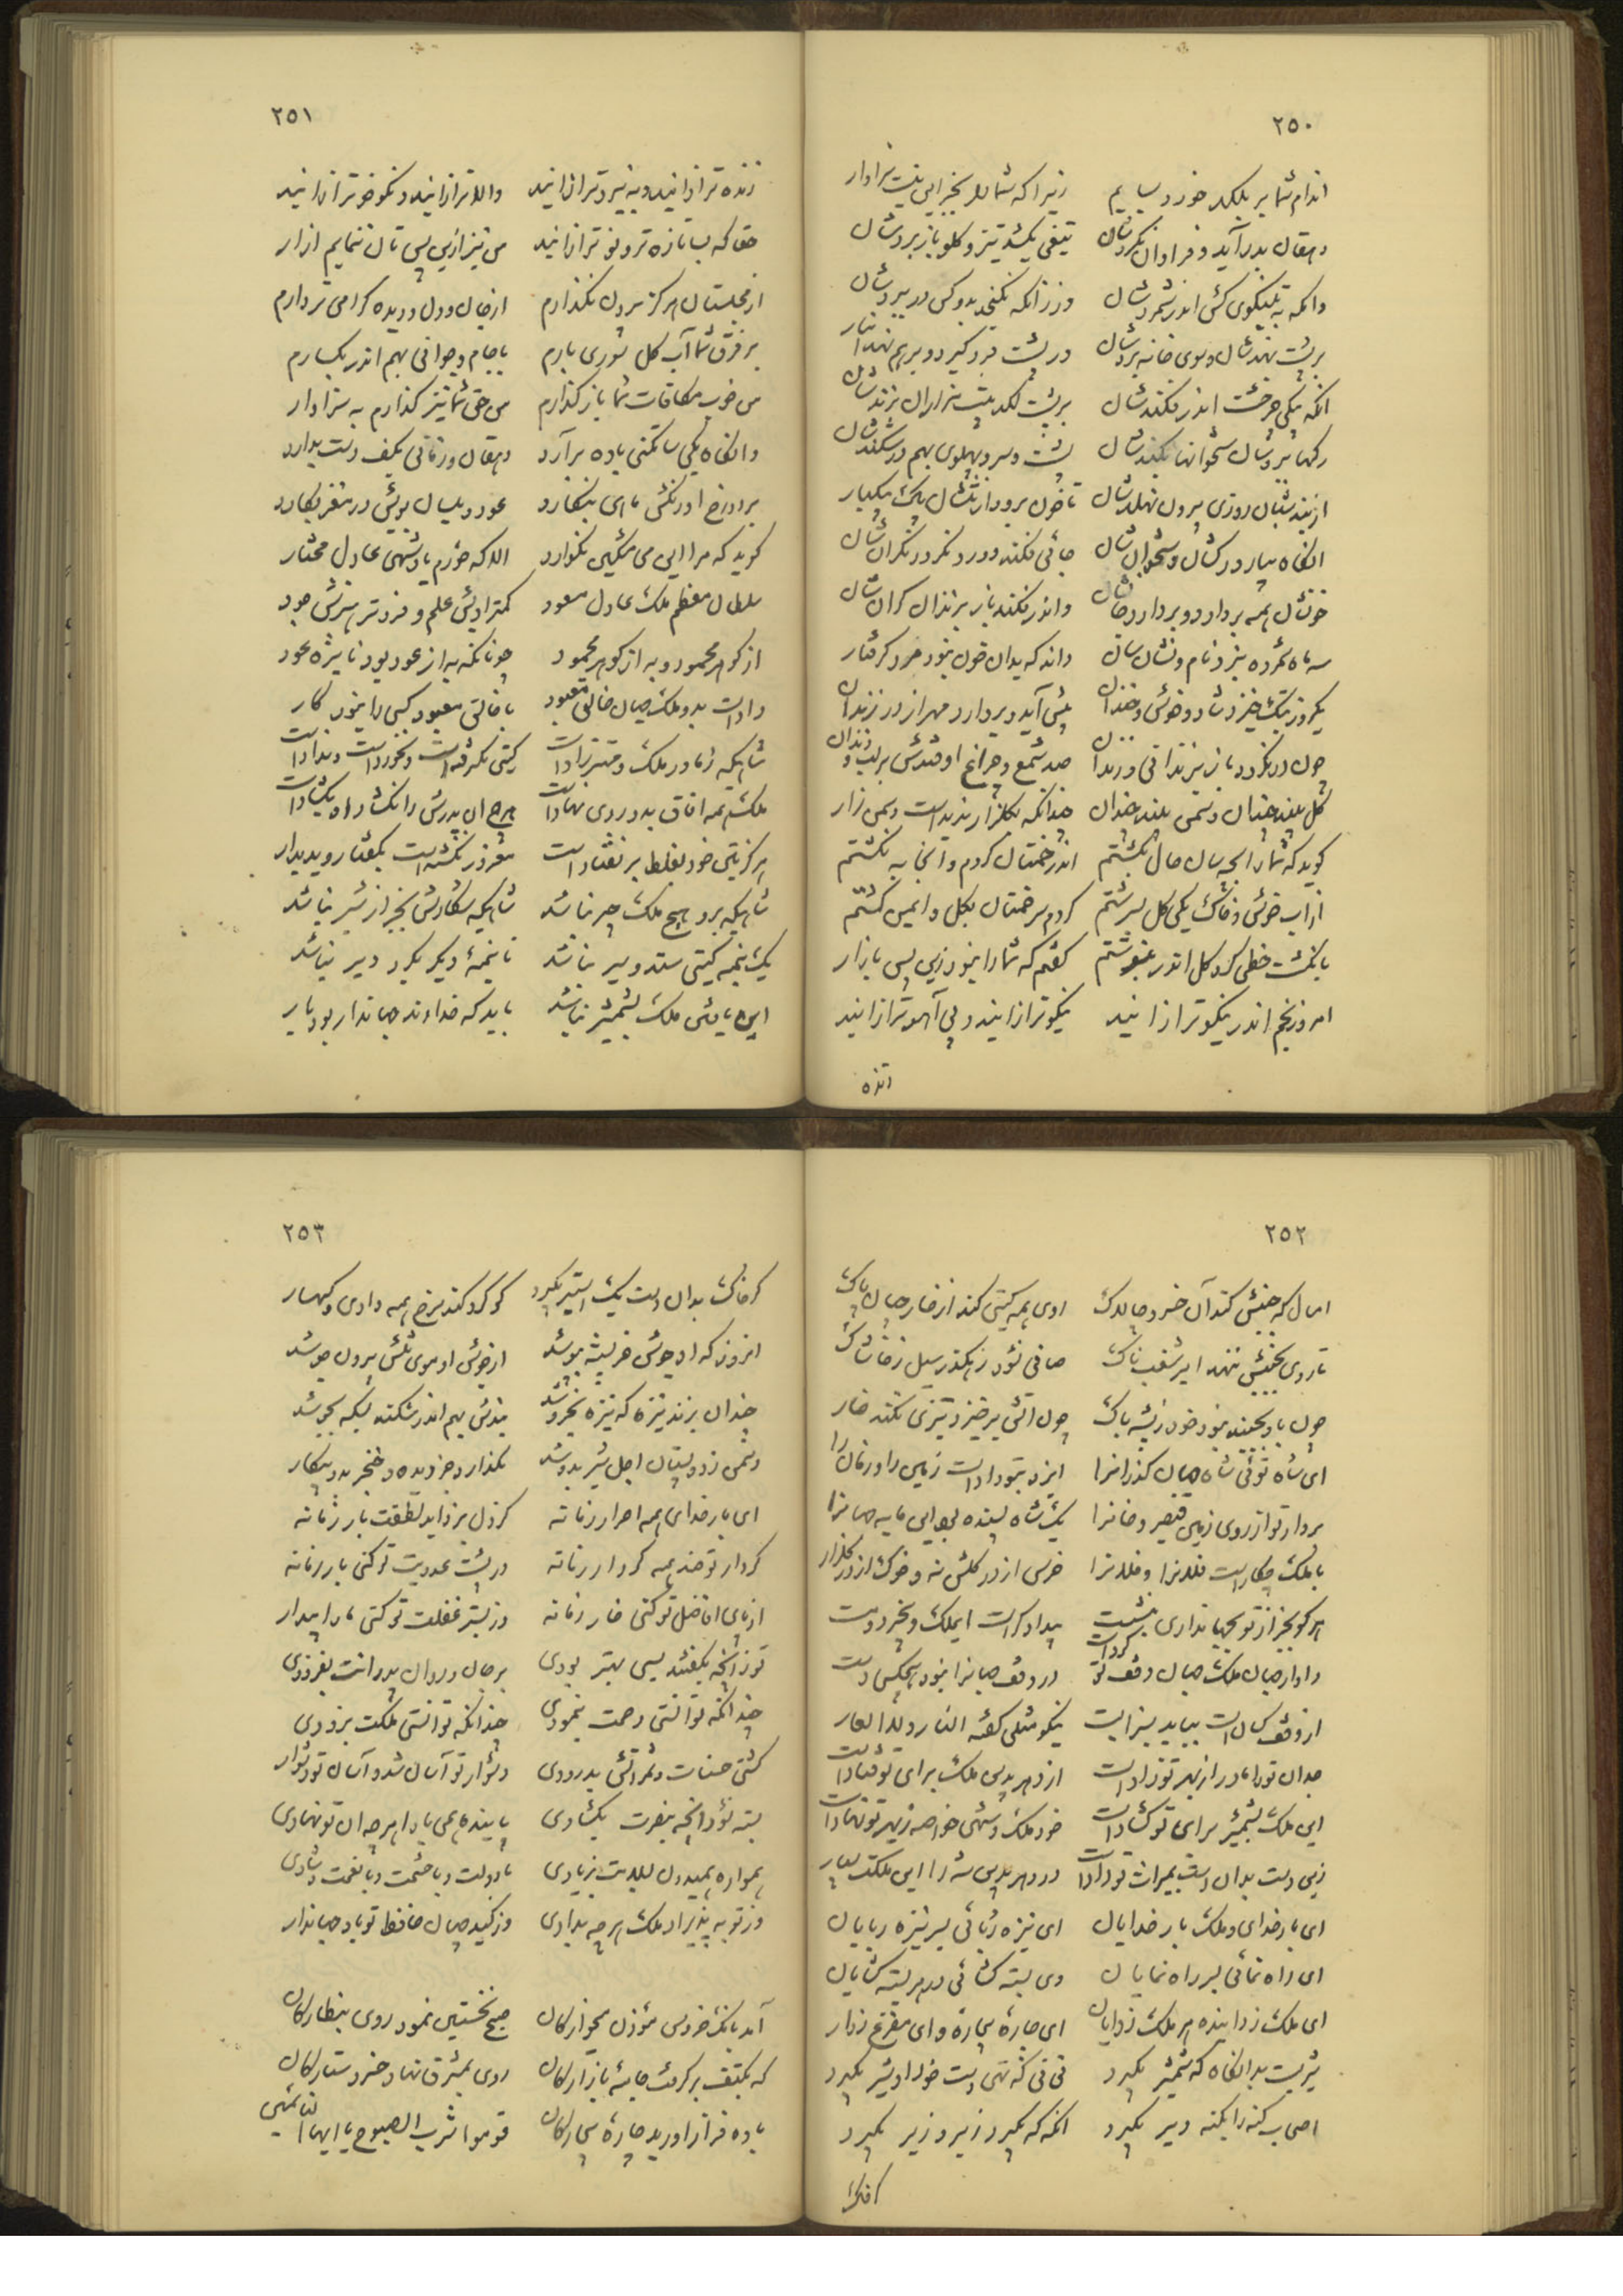 ۲۵۰
اندام شما بر بلگد خرد بسایم زیرا که شما را بجز این نیست سزاوار
دهقان بدر آید و فراوان نگردشان تیغی بکشد تیز و گلو باز بردشان
وانگه به تبنگوی کش اندر شمردشان ورزانکه نگنجد بدو کس در سپردشان
بر پشت نهدشان و سوی خانه بردشان وز پشت فرو گیرد و بر هم نهد انبار
آنگه بیکی چرخشت اندر فکندشان بر پشت لگد بیست هزاران بزندشان
رگها ببردشان ستخوانها بکندشان پشت و سر و پهلوی بهم در شکندشان
از بند شبان روزی بیرون نهلدشان تا خون برود از تنشان پاک بیکبار
آنگاه بیارد رگشان و ستخوانشان جائی فکند دور و نگردد نگرانشان
خونشان همه بردارد و بردارد جانشان واندر فکند باز بزندان گرانشان
سه ماه شمرده نبرد نام و نشانشان داند که بدان خون نبود مرد گرفتار
یکروز سبک خیزد شاد و خوش و خندان پیش آید و بردارد مهر از در زندان
چون در نگرد باز بزندانی و زندان صد شمع و چراغ اوفتدش بر لب و دندان
گل بیند چندان و سمن بیند چندان چندانکه بگلزار ندیدست و سمن زار
گوید که شما را بچه سان حال بکشتم اندر خمتان کردم و آنجا به نکشتم
از آب خوش و خاک یکی گل بسرشتم کردم سر خمتان بگل و ایمن گشتم
بانگشت خطی گرد گل اندر بنوشتم گفتم که شما را نبود زین پس بازار
امروز بخم اندر نیکوتر از آنید نیکوتر از آنید و بی آهوتر از آنید
زنده
۲۵۱
زنده تر از آنید و به نیروتر از آنید والاتر از آنید و نکوخوتر از آنید
حقا که بسا تازه تر و نوتر از آنید من نیز ازین پس تان ننمایم آزار
از مجلستان هرگز بیرون نگذارم از جان و دل و دیده گرامی تر دارم
بر فرق شما آب گل سوری بارم با جام و جوانی بهم اندر بگسارم
من خوب مکافات شما باز گذارم من حق شما نیز گذارم به سزاوار
وانگاه یکی ساتکنی باده برآرد دهقان و زمانی بکف دست بدارد
بر دو رخ او رنگش ماهی بنگارد عود و بلسان بویش در مغز بکارد
گوید که مرا این می مشکین نگوارد الا که خورم یاد شهی عادل مختار
سلطان معظم ملک عادل مسعود کمتر ادبش علم و فروتر هنرش جود
از گوهر محمود و به از گوهر محمود چونانکه به از عود بود نایژه عود
دادست بدو ملک جهان خالق معبود با خالق معبود کسی را نبود کار
شاهیکه ز مادر ملک و مهتر زادست گیتی بگرفتست و نخوردست و بدادست
ملکش همه آفاق بدو روی نهادست هرچ آن پدرش را نگشاد او بگشادست
هرگز بتن خود بغلط بر نفتادست مغرور نگشته است بگفتار و بدیدار
شاهیکه برو هیچ ملک چیر نباشد شاهیکه شکارش بجز از شیر نباشد
یک نیمه گیتی ستد و سیر نباشد تا نیمۀ دیگر بگرد دیر نباشد
این یافتن ملک بشمشیر نباشد باید که خداوند جهاندار بود یار
۲۵۲
امسال که جنبش کند آن خسرو چالاک روی همه گیتی کند از خار جهان پاک
تا روی بجنبش ننهد ابر شغب ناک صافی نشود رهگذر سیل ز خاشاک
چون باد بجنبد نبود خود ز پشه باک چون آتش برخیزد تیزی نکند خار
ای شاه توئی شاه جهان گذران را ایزد بتو دادست زمین را و زمان را
بردار تو از روی زمین قیصر و خان را یک شاه بسنده بود این مایه جهان را
با ملک چکارست فلان را و فلان را خرس از در گلشن نه و خوک از در گلزار
هر کو بجز از تو بجهانداری بنشست بیدادگرست ای ملک و بیخرد و مست
دادار جهان ملک جهان وقف تو کردست در وقف جهان را نبود هیچکس دست
از وقف کسان دست بباید بسزا بست نیکو مثلی گفته النار و لا العار
چندان تو را مادر از بهر تو زادست از دهر بدین ملک برای تو فتادست
این ملک بشمشیر برای تو گشادست خود ملک و شهی خاصه ز بهر تو نهادست
زین دست بدان دست بمیراث تو دادست در دهر بدین شه را این ملکت بسیار
ای بار خدای و ملک بار خدایان ای نیزه ربائی بسر نیزه ربایان
ای راه نمائی بسر راه نمایان وی بسته گشائی در هر بسته گشایان
ای ملک زداینده هر ملک زدایان ای چارۀ بیچاره و ای مفزع زوار
شیریست بدانگاه که شمشیر بگیرد نی نی که تهی دست خود او شیر بگیرد
اصحاب گنه را بگنه دیر بگیرد آنگه که بگیرد زبر و زیر بگیرد
گر خاک
۲۵۳
گر خاک بدان دست یک استیر بگیرد گوگرد کند سرخ همه وادی و کهسار
آنروز که او جوشن خرپشته بپوشد از جوشن او موی تنش بیرون جوشد
چندان بزند نیزه که نیزه بخروشد بندش بهم اندر شکند بسکه بجوشد
دشمن ز دو پستان اجل شیر بدوشد بگذارد جز دیده و خنجر بد و پیکار
ای بار خدای همه احرار زمانه کز دل بزداید لطفت بار زمانه
کردار تو خندد همه کردار زمانه در پشت عدویت تو کنی بار زمانه
از پای افاضل تو کنی خار زمانه وز بستر غفلت تو کنی ما را بیدار
تو زانچه بگفتند بسی بهتر بودی بر جان و روان پدرانت بفزودی
چندانکه توانستی رحمت بنمودی چندانکه توانستی ملکت بزدودی
کشتی حسنات و ثمراتش بدرودی دشوار تو آسان شد و آسان تو دشوار
بسته نشود آنچه بنصرت بگشادی پاینده همی بادا هر چه آن تو نهادی
همواره همیدون بسلامت بزیادی با دولت و با حشمت و با نعمت و شادی
وز تو بپذیراد ملک هر چه بدادی وز کید جهان حافظ تو باد جهاندار
آمد بانگ خروس مؤذن میخوارگان صبح نخستین نمود روی بنظارگان
که بکتف بر گرفت جامه بازارگان روی بمشرق نهاد خسرو ستارگان
باده فراز آورید چارۀ بیچارگان قوموا شرب الصبوح یا ایها النائمین